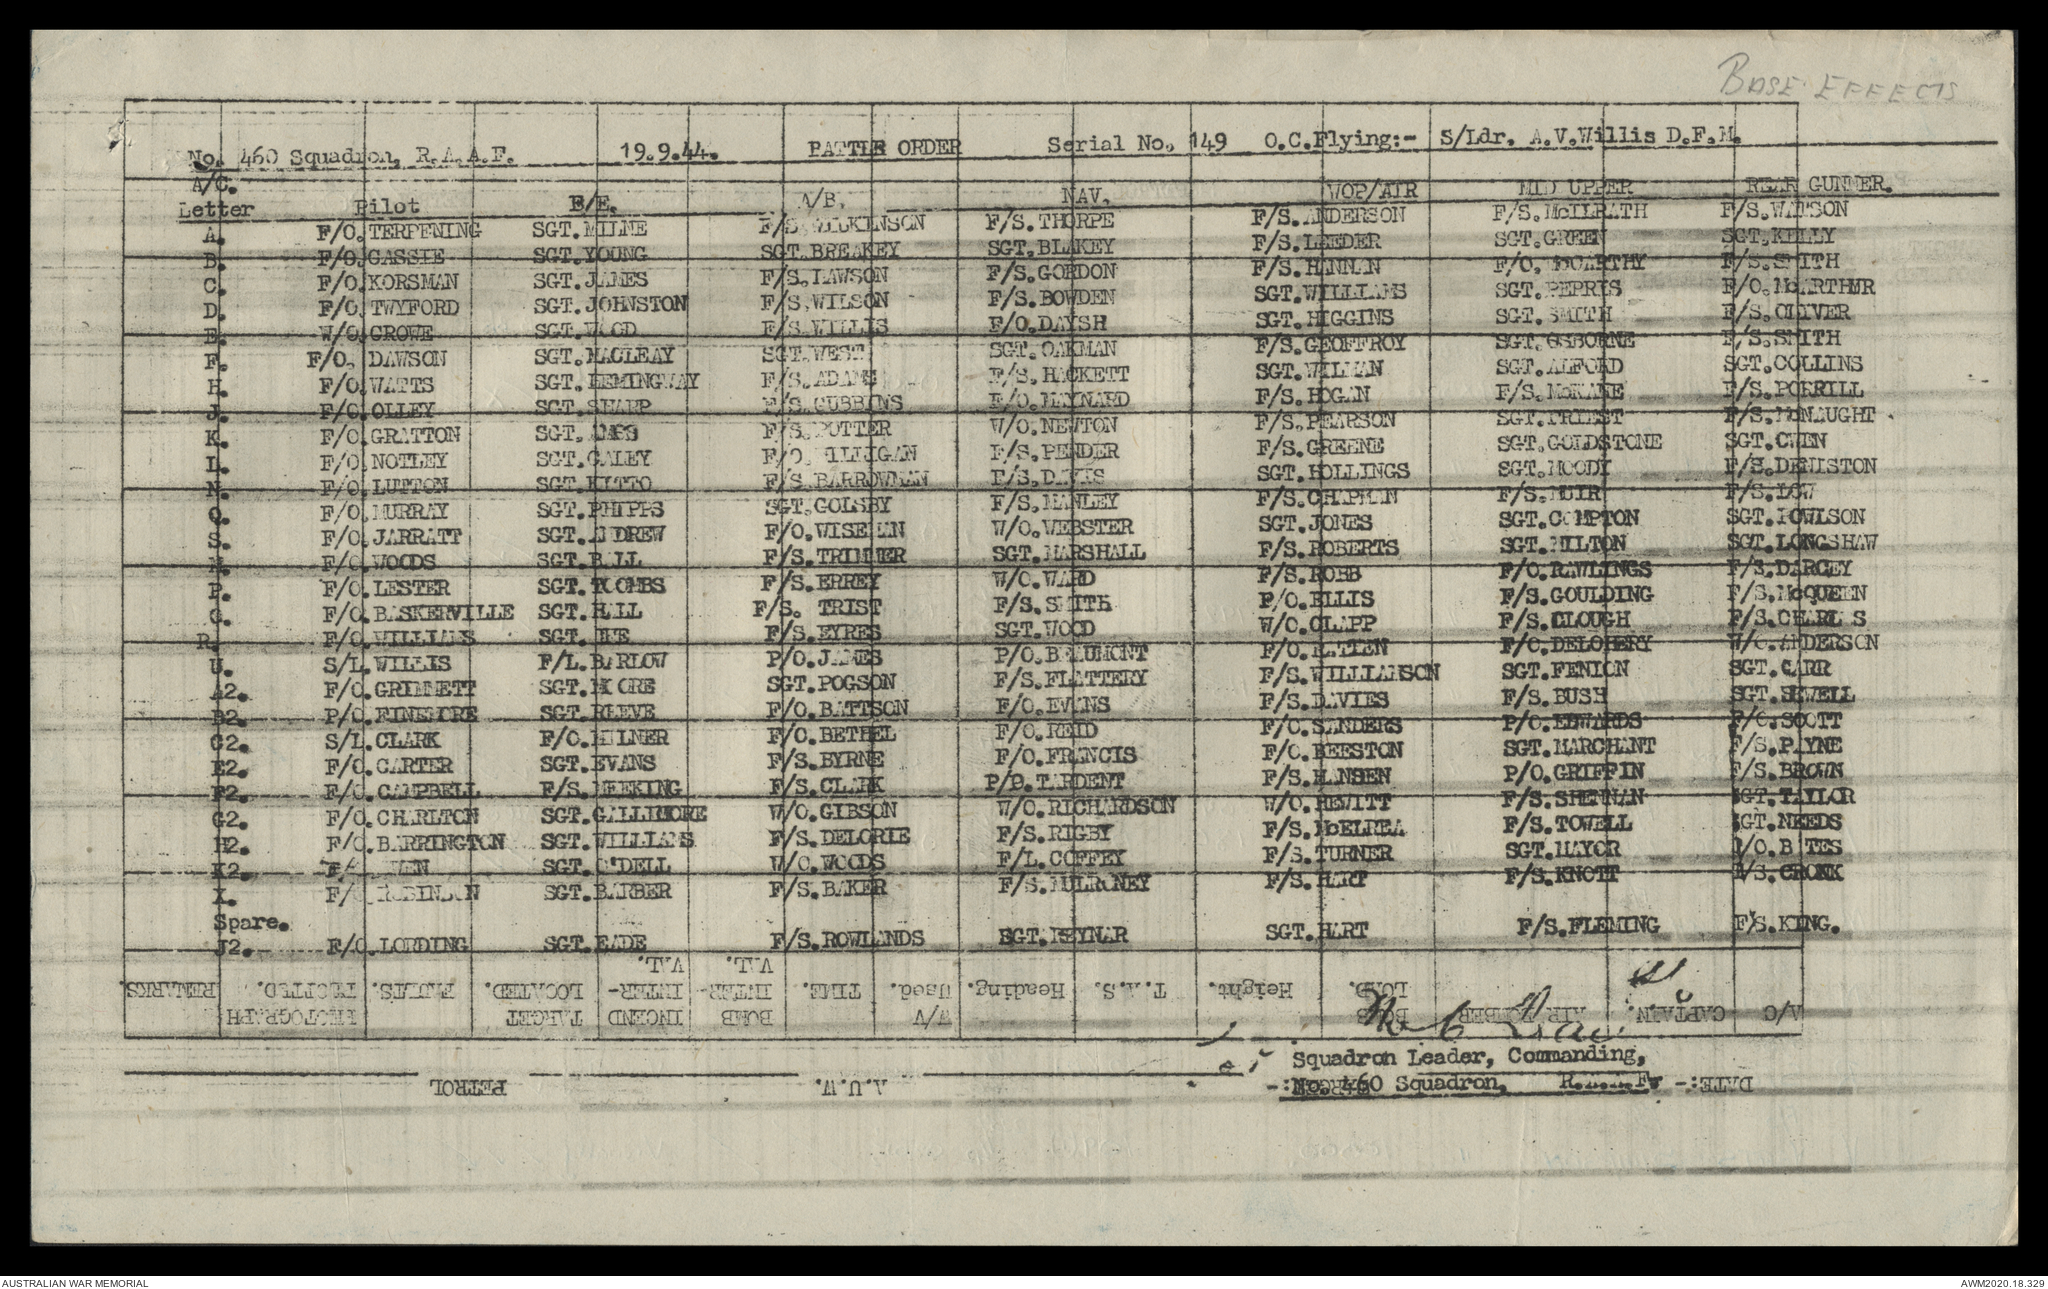 BASE EFFECTS
No. 460 Squadron, R.A.A.F. 19.9.44. BATTLE ORDER Serial No. 149 O.C.Flying:- S/Ldr. A.V.Willis D.F.M.
A/C.
Letter Pilot F/E. A/B. NAV. WOP/AIR MID UPPER REAR GUNNER.
A. F/O. TERPENING SGT. MILNE F/S. WILKINSON F/S. THORPE F/S. ANDERSON F/S. McILRATH F/S. WATSON
B. F/O. CASSIE SGT. YOUNG SGT. BREAKEY SGT. BLAKEY F/S. LEEDER SGT. GREEN SGT. KELLY
C. F/O. KORSMAN SGT. JAMES F/S. LAWSON F/S. GORDON F/S. HANNAN F/O. McCARTHY F/S. SMITH
D. F/O. TWYFORD SGT. JOHNSTON F/S. WILSON F/S. BOWDEN SGT. WILLIAMS SGT. PEPRIS F/O. McARTHUR
E. W/O. CROWE SGT. WOOD F/S. WILLIS F/O. DAYSH SGT. HIGGINS SGT. SMITH F/S. OLIVER
F. F/O. DAWSON SGT. MACLEAY SGT. WEST SGT. OAKMAN F/S. GEOFFROY SGT. OSBORNE F/S. SMITH
H. F/O. WATTS SGT. HEMINGWAY F/S. ADAMS F/S. HACKETT SGT. WILMAN SGT. ALFORD SGT. COLLINS
J. F/O. OLLEY SGT. SHARP F/S. GUBBINS F/O. MAYNARD F/S. HOGAN F/S. McKANE F/S. PORRILL
K. F/O. GRATTON SGT. F/S. POTTER W/O. NEWTON F/S. PEARSON SGT. PRIEST F/S. McNAUGHT
L. F/O. NOTLEY SGT. CALEY F/O. MILLIGAN F/S. PENDER F/S. GREENE SGT. GOLDSTONE SGT. OWEN
N. F/O. LUTTON SGT. KITTO F/S. BARROWMAN F/S. DAVIS SGT. HOLLINGS SGT. MOODY F/S. DENISTON
Q. F/O. MURRAY SGT. PHIPPS SGT. GOLSBY F/S. MANLEY F/S. CHAPMAN F/S. MUIR F/S. LOW
S. F/O. JARRATT SGT. ANDREW F/O. WISEMAN W/O. WEBSTER SGT. JONES SGT. COMPTON SGT. POWLSON
M. F/O. WOODS SGT. BALL F/S. TRIMMER SGT. MARSHALL F/S. ROBERTS SGT. MILTON SGT. LONGSHAW
P. F/O. LESTER SGT. TOOMBS F/S. ERREY W/O. WARD F/S. ROBB F/O. RAWLINGS F/S. DARCEY
G. F/O. BASKERVILLE SGT. HALL F/S. TRIST F/S. SMITH P/O. ELLIS F/S. GOULDING F/S. McQUEEN
R. F/O. WILLIAMS SGT. F/S. EYRES SGT. WOOD W/O. CLAPP F/S. CLOUGH F/S. CHARLES
U. S/L. WILLIS F/L. BARLOW P/O. JAMES P/O. BEAUMONT F/O. F/O. DELOHERY W/O. ANDERSON
A2. F/O. GRIMMETT SGT. MOORE SGT. POGSON F/S. FLATTERY F/S. WILLIAMSON SGT. FENION SGT. CARR
B2. P/O. FINEMORE SGT. REEVE F/O. BATTSON F/O. EVANS F/S. DAVIES F/S. BUSH SGT. SEWELL
C2. S/L. CLARK F/O. MILNER F/O. BETHEL F/O. REID F/O. SANDERS P/O. EDWARDS F/O. SCOTT
E2. F/O. CARTER SGT. EVANS F/S. BYRNE F/O. FRANCIS F/O. BEESTON SGT. MARCHANT F/S. PAYNE
F2. F/O. CAMPBELL F/S. MEEKING F/S. CLARK P/O. TARDENT F/S. HANSEN P/O. GRIFFIN F/S. BROWN
G2. F/O. CHARLTON SGT. GALLIMORE W/O. GIBSON W/O. RICHARDSON W/O. HEWITT F/S. SHENNAN SGT. TAYLOR
H2. F/O. BARRINGTON SGT. WILLIAMS F/S. DELORIE F/S. RIGBY F/S. McELREA F/S. TOWELL SGT. NEEDS
K2. SGT. O'DELL W/O. WOODS F/L. COFFEY F/S. TURNER SGT. MAYOR BATES
X. F/O. ROBINSON SGT. BARBER F/S. BAKER F/S. MULRONEY F/S. HART F/S. KNOTT F/S. CRONK
Spare.
J2. F/O. LORDING SGT. EADE F/S. ROWLANDS SGT. SGT. HART F/S. FLEMING F/S. KING.
A/C CAPTAIN. AIR BOMBER BOMB LOAD. Height. T.A.S. Heading. W/V Used. TIME. BOMB INTER- V.L. INCEND INTER- V.L. TARGET LOCATED. FAULTS. PHOTOGRAPH PLOTTED. REMARKS.
Squadron Leader, Commanding,
No. 460 Squadron, R.A.A.F.
DATE:- A.U.W. PETROL
AUSTRALIAN WAR MEMORIAL AWM2020.18.329